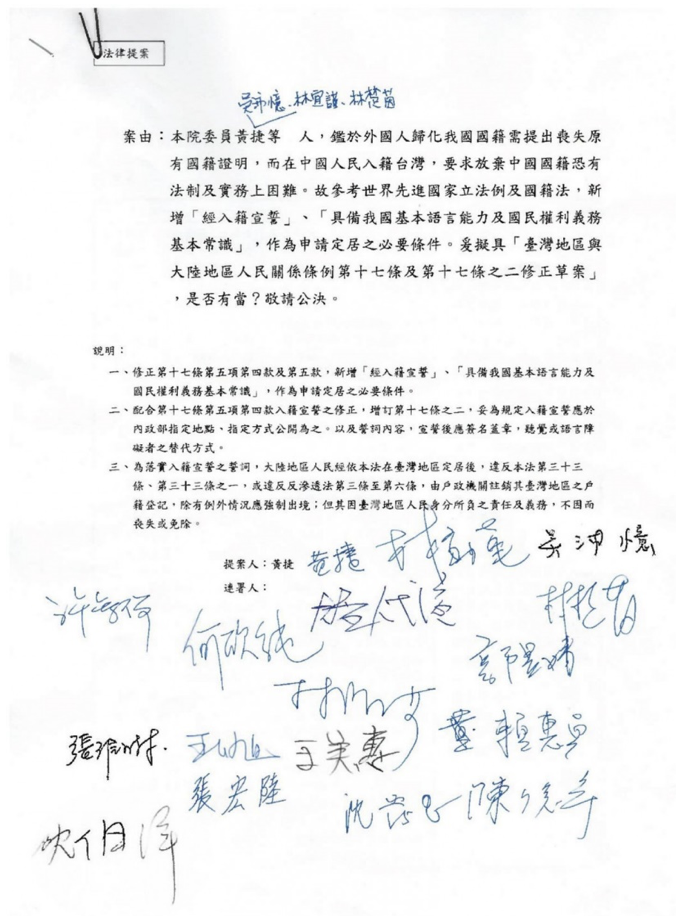 法律提案
吳沛憶、林宜瑾、林楚茵
案由：本院委員黃捷等　人，鑑於外國人歸化我國國籍需提出喪失原
有國籍證明，而在中國人民入籍台灣，要求放棄中國國籍恐有
法制及實務上困難。故參考世界先進國家立法例及國籍法，新
增「經入籍宣誓」、「具備我國基本語言能力及國民權利義務
基本常識」，作為申請定居之必要條件。爰擬具「臺灣地區與
大陸地區人民關係條例第十七條及第十七條之二修正草案」
，是否有當？敬請公決。
說明：
一、修正第十七條第五項第四款及第五款，新增「經入籍宣誓」、「具備我國基本語言能力及
國民權利義務基本常識」，作為申請定居之必要條件。
二、配合第十七條第五項第四款入籍宣誓之修正，增訂第十七條之二，妥為規定入籍宣誓應於
內政部指定地點、指定方式公開為之。以及誓詞內容，宣誓後應簽名蓋章，聽覺或語言障
礙者之替代方式。
三、為落實入籍宣誓之誓詞，大陸地區人民經依本法在臺灣地區定居後，違反本法第三十三
條、第三十三條之一，或違反反滲透法第三條至第六條，由戶政機關註銷其臺灣地區之戶
籍登記，除有例外情況應強制出境；但其因臺灣地區人民身分所負之責任及義務，不因而
喪失或免除。
提案人：黃捷 黃捷 吳沛憶
連署人：
何欣純 林楚茵
王美惠 賴惠員
張宏陸
沈伯洋